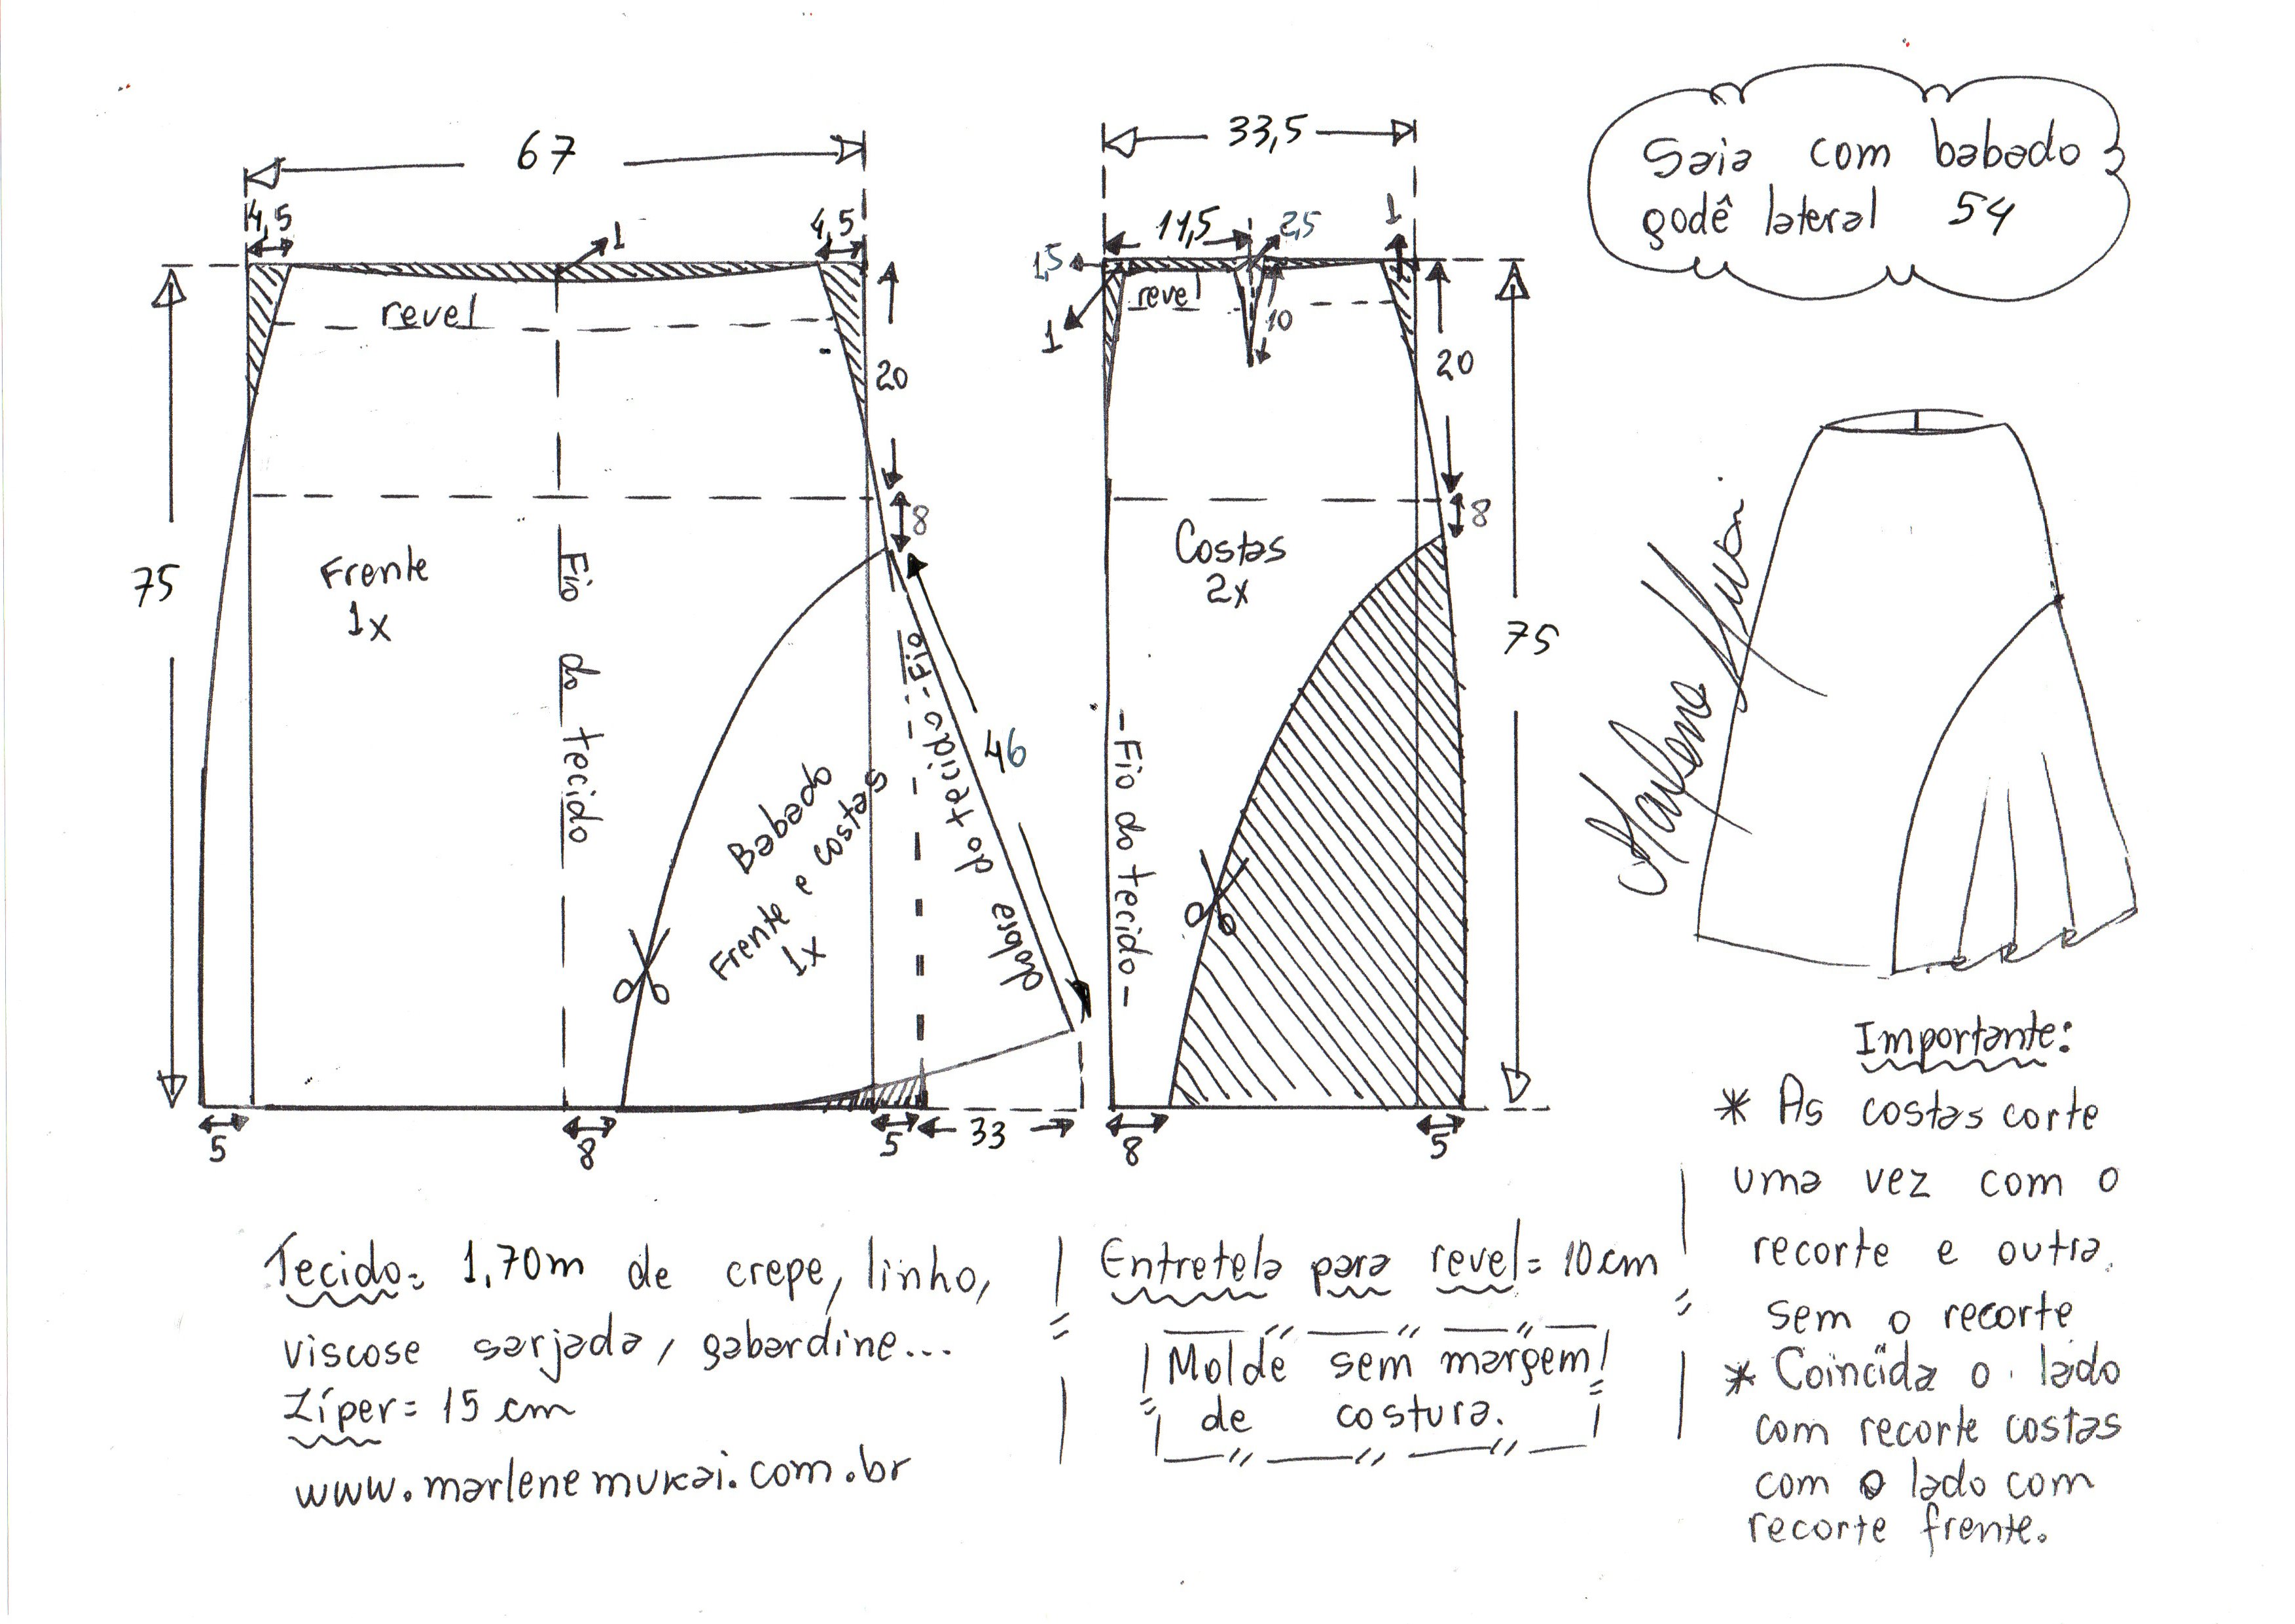 Saia com babado
godê lateral 54
67
4,5
4,5
1
revel
20
8
75
Frente
1x
Fio do tecido
46
Babado
Frente e costas
1x
Fio do tecido
dobre
5
8
5
33
33,5
11,5
2,5
1
1,5
revel
1
10
20
8
Costas
2x
75
-Fio do tecido-
8
5
Marlene Mukai
Importante:
* As costas corte
uma vez com o
recorte e outra
sem o recorte
* Coincida o lado
com recorte costas
com o lado com
recorte frente.
Tecido= 1,70m de crepe, linho,
viscose sarjada, gabardine...
Zíper= 15 cm
www.marlenemukai.com.br
Entretela para revel= 10cm
Molde sem margem
de costura.